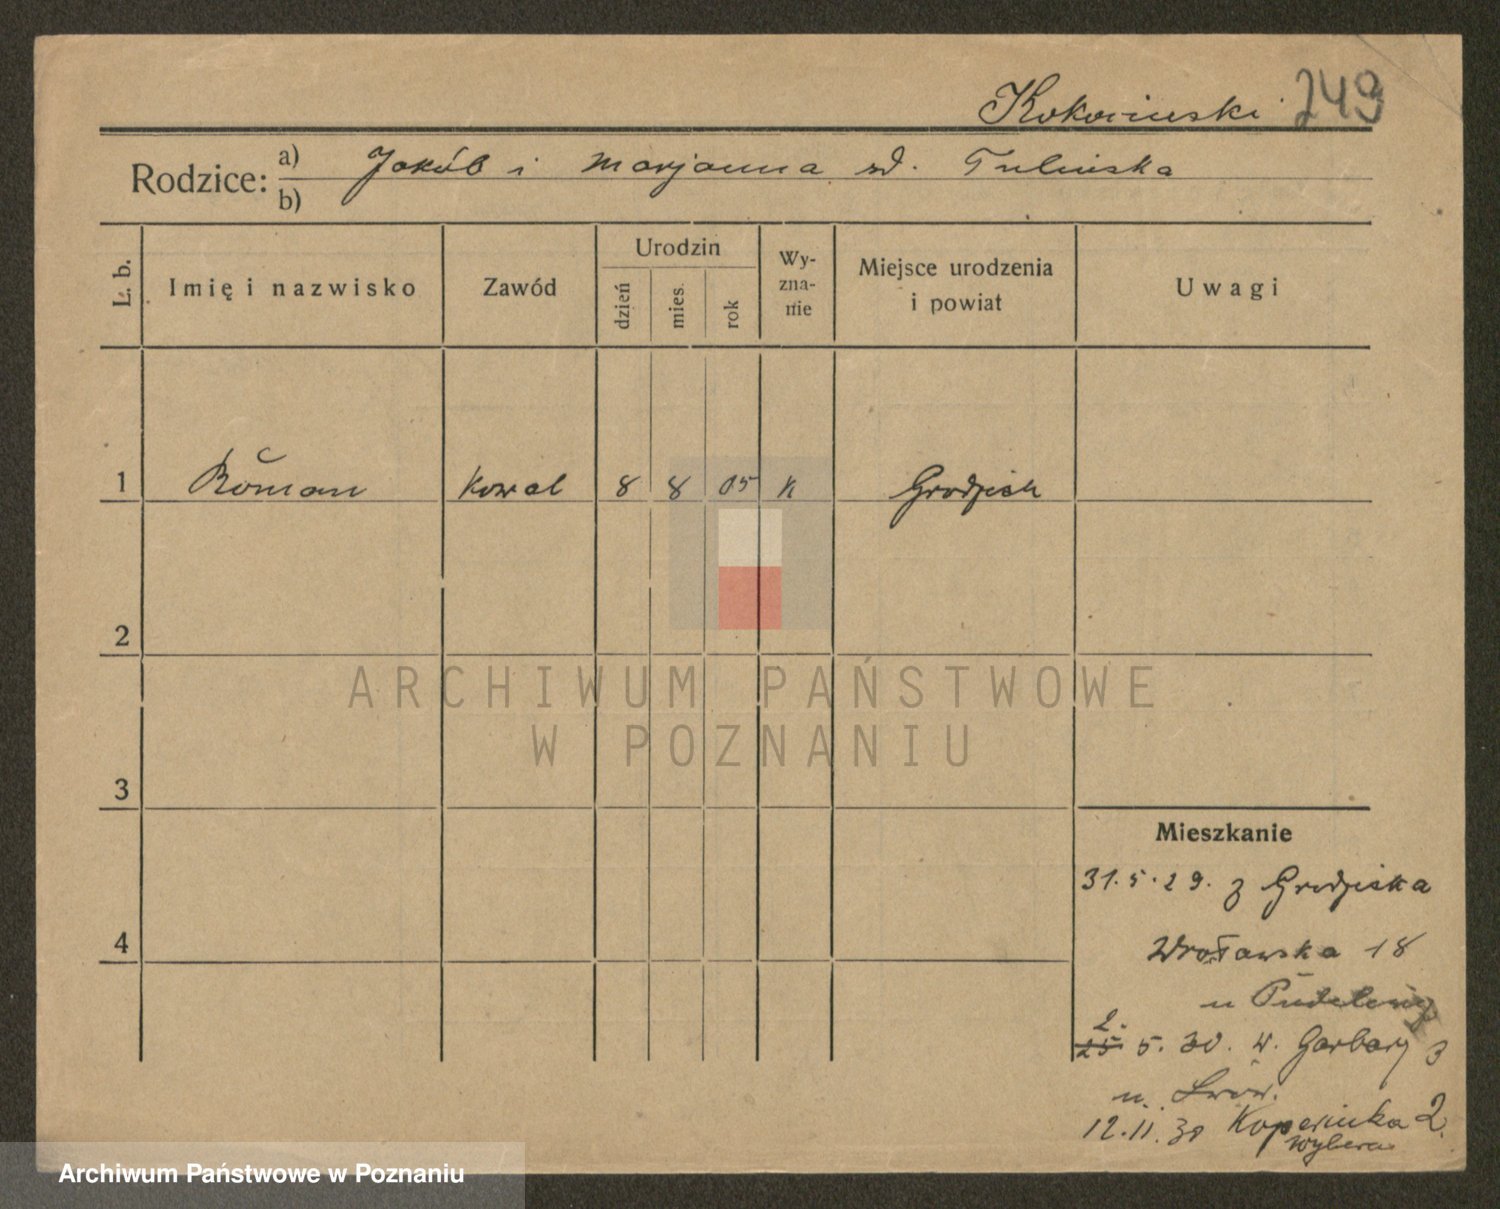 Kokociński 249
Rodzice: a) Jakób i Marjanna zd. Tulińska
b)
L. b. Imię i nazwisko Zawód Urodzin dzień mies. rok Wy-zna-nie Miejsce urodzenia i powiat Uwagi
1 Roman kowal 8 8 05 k Grodzisk
2
ARCHIWUM PAŃSTWOWE
W POZNANIU
3
Mieszkanie
31.5.29. z Grodziska
4
Wrocławska 18
u
2.
25 5. 30. w. Garbary 3
u.
12.11.30 Kopernika 2.
Archiwum Państwowe w Poznaniu